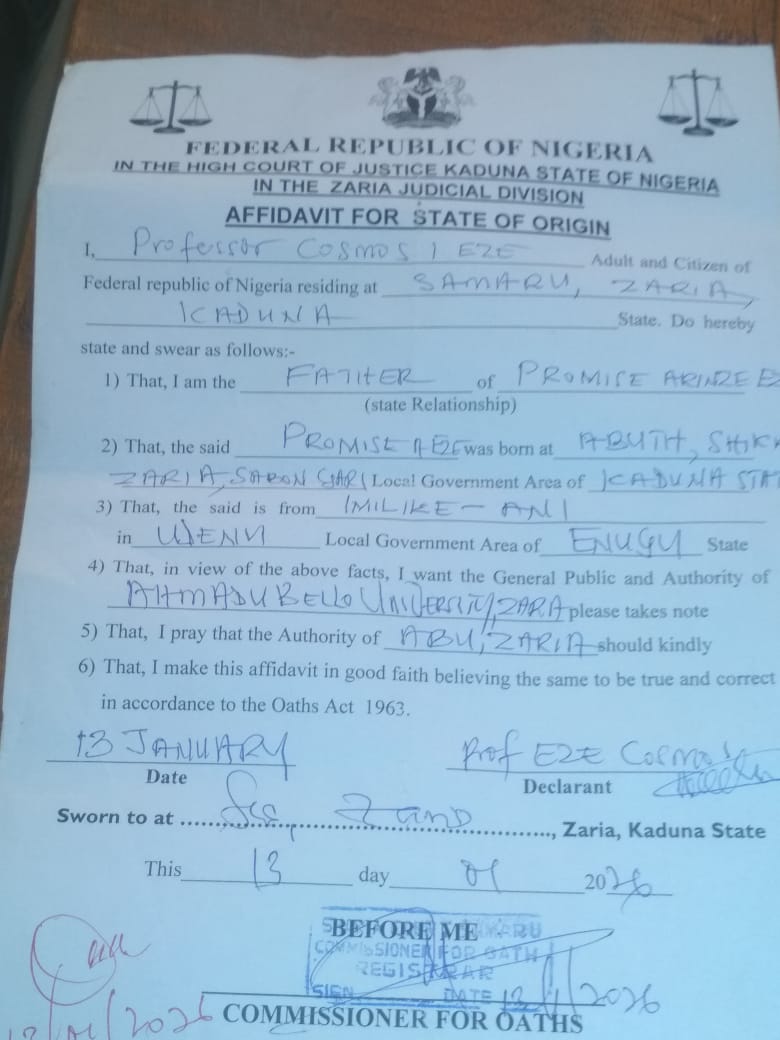 FEDERAL REPUBLIC OF NIGERIA
IN THE HIGH COURT OF JUSTICE KADUNA STATE OF NIGERIA
IN THE ZARIA JUDICIAL DIVISION
AFFIDAVIT FOR STATE OF ORIGIN
I, Professor Cosmos I EZE Adult and Citizen of
Federal republic of Nigeria residing at SAMARU, ZARIA,
KADUNA State. Do hereby
state and swear as follows:-
1) That, I am the FATHER of PROMISE ARINZE E
(state Relationship)
2) That, the said PROMISE A EZE was born at ABUTH, SHIK
ZARIA, SABON GARI Local Government Area of KADUNA STA
3) That, the said is from IMILIKE - ANI
in UDENU Local Government Area of ENUGU State
4) That, in view of the above facts, I want the General Public and Authority of
AHMADU BELLO UNIVERSITY, ZARIA please takes note
5) That, I pray that the Authority of ABU, ZARIA should kindly
6) That, I make this affidavit in good faith believing the same to be true and correct
in accordance to the Oaths Act 1963.
13 JANUARY Prof EZE Cosmos
Date Declarant
Sworn to at ........, Zaria, Kaduna State
This 13 day 01 2026
BEFORE ME
COMMISSIONER FOR OATH
REGISTRAR
SIGN DATE 13/1/2026
13/01/2026 COMMISSIONER FOR OATHS